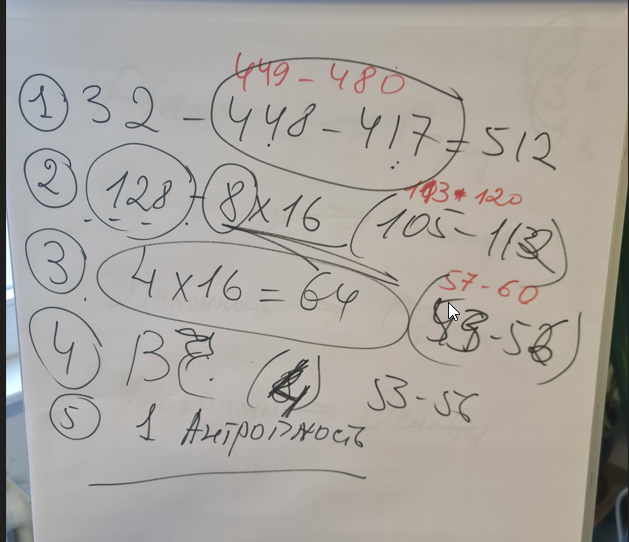 449 - 480
① 32 - 448 - 417 = 512
113 - 120
② 128 - 8 x 16 (105 - 112)
57 - 60
③ 4 x 16 = 64 53 - 56
④ 53 - 56
⑤ 1